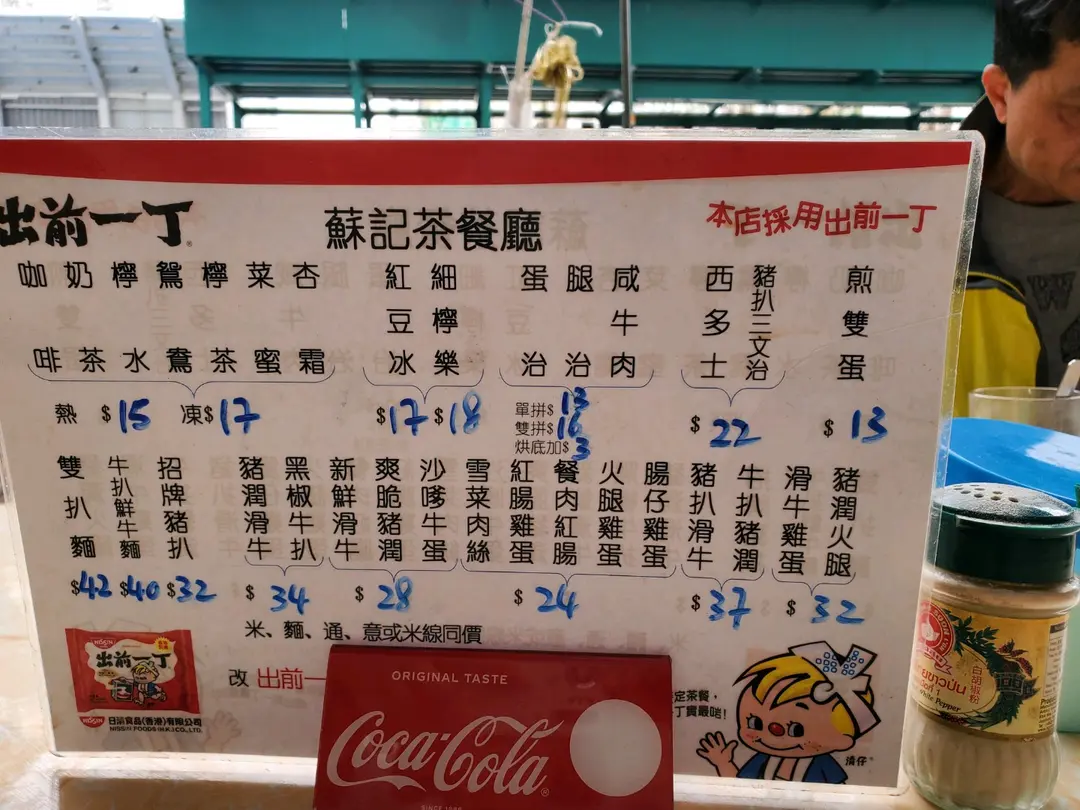 出前一丁
蘇記茶餐廳
本店採用出前一丁
咖啡
奶茶
檸水
鴛鴦
檸茶
菜蜜
杏霜
熱 $15 凍$17
紅豆冰
細檸樂
$17 $18
蛋治
腿治
咸牛肉
單拼$ 13
雙拼$ 16
烘底加$ 3
西多士
豬扒三文治
$ 22
煎雙蛋
$ 13
雙扒麵
$42
牛扒鮮牛麵
$40
招牌豬扒
$32
豬潤滑牛
黑椒牛扒
$ 34
新鮮滑牛
爽脆豬潤
沙嗲牛蛋
$ 28
雪菜肉絲
紅腸雞蛋
餐肉紅腸
火腿雞蛋
腸仔雞蛋
$ 24
豬扒滑牛
牛扒豬潤
$ 37
滑牛雞蛋
豬潤火腿
$ 32
米、麵、通、意或米線同價
改 出前一
定茶餐,
丁貴最啱!
清仔
NISSIN
出前一丁
NISSIN 日清食品(香港)有限公司
NISSIN FOODS (H.K.) CO., LTD.
ORIGINAL TASTE
Coca-Cola
SINCE 1886
白胡椒粉
White Pepper
W